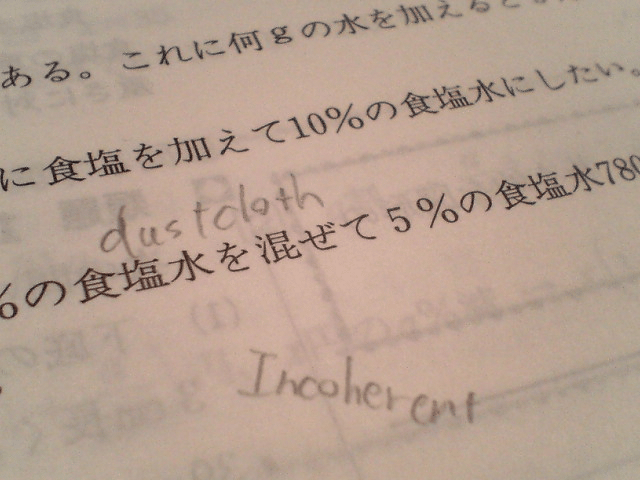 ある。これに何gの水を加えると
に食塩を加えて10%の食塩水にしたい。
dustcloth
%の食塩水を混ぜて5%の食塩水780
Incoherent